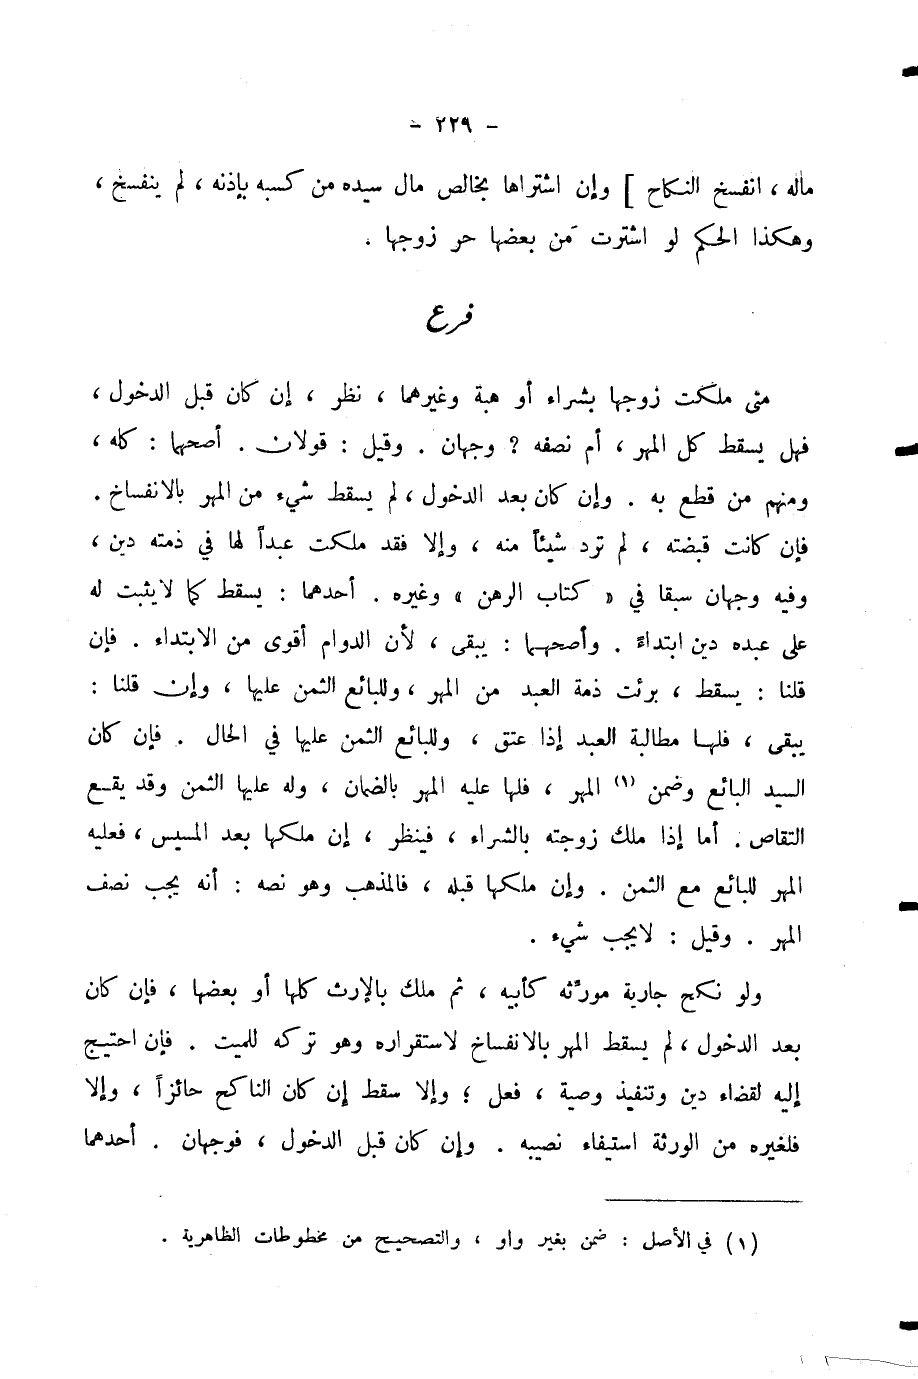 – ٢٢٩ –
ماله ، انفسخ النكاح ] وإن اشتراها بخالص مال سيده من كسبه بإذنه ، لم ينفسخ ،
وهكذا الحكم لو اشترت مَن بعضها حر زوجها .
فرع
متى ملكت زوجها بشراء أو هبة وغيرهما ، نظر ، إن كان قبل الدخول ،
فهل يسقط كل المهر ، أم نصفه ? وجهان . وقيل : قولان . أصحها : كله ،
ومنهم من قطع به . وإن كان بعد الدخول ، لم يسقط شيء من المهر بالانفساخ .
فإن كانت قبضته ، لم ترد شيئاً منه ، وإلا فقد ملكت عبداً لها في ذمته دين ،
وفيه وجهان سبقا في « كتاب الرهن » وغيره . أحدهما : يسقط كما لا يثبت له
على عبده دين ابتداءً . وأصحهما : يبقى ، لأن الدوام أقوى من الابتداء . فإن
قلنا : يسقط ، برئت ذمة العبد من المهر ، وللبائع الثمن عليها ، وإن قلنا :
يبقى ، فلها مطالبة العبد إذا عتق ، وللبائع الثمن عليها في الحال . فإن كان
السيد البائع وضمن (١) المهر ، فلها عليه المهر بالضمان ، وله عليها الثمن وقد يقع
التقاص . أما إذا ملك زوجته بالشراء ، فينظر ، إن ملكها بعد المسيس ، فعليه
المهر للبائع مع الثمن . وإن ملكها قبله ، فالمذهب وهو نصه : أنه يجب نصف
المهر . وقيل : لا يجب شيء .
ولو نكح جارية مورِّثه كأبيه ، ثم ملك بالإرث كلها أو بعضها ، فإن كان
بعد الدخول ، لم يسقط المهر بالانفساخ لاستقراره وهو تركه للميت . فإن احتيج
إليه لقضاء دين وتنفيذ وصية ، فعل ؛ وإلا سقط إن كان الناكح حائزاً ، وإلا
فلغيره من الورثة استيفاء نصيبه . وإن كان قبل الدخول ، فوجهان . أحدهما
(١) في الأصل : ضمن بغير واو ، والتصحيح من مخطوطات الظاهرية .